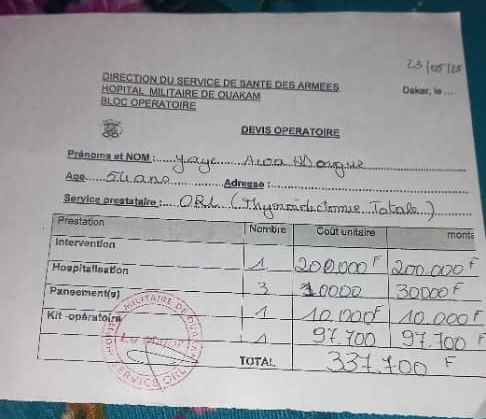 23/05/25
DIRECTION DU SERVICE DE SANTE DES ARMEES
HOPITAL MILITAIRE DE OUAKAM
Dakar, le ....
BLOC OPERATOIRE
DEVIS OPERATOIRE
Prénoms et NOM : Yaye Awa Mongue
Age 54 ans Adresse :
Service prestataire : ORL (Thyroidectomie Totale)
Prestation Nombre Coût unitaire monta
Intervention 1 200.000 F 200.000 F
Hospitalisation 3 10000 30000 F
Pansement(s) 1 10.000 F 10.000 F
Kit -opératoire 1 97.700 97.700 F
TOTAL 337.700 F
HOPITAL MILITAIRE DE OUAKAM
Le Major
SERVICE ORL